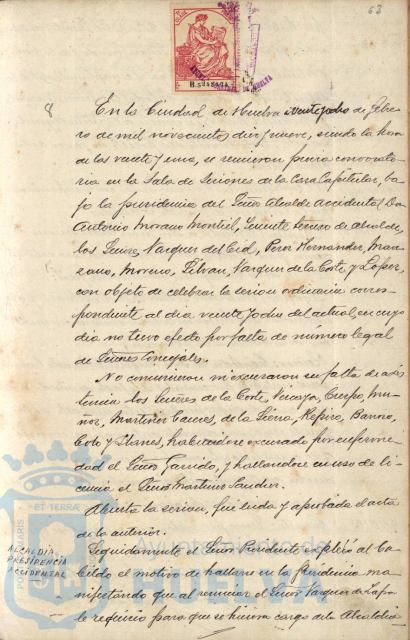 63
8
En la Ciudad de Huelva a veinte y ocho de Febre-
ro de mil novecientos diez y nueve, siendo la hora
de las veinte y una, se reunieron previa convocato-
ria en la Sala de Sesiones de la Casa Capitular, ba-
jo la presidencia del Señor Alcalde accidental Don
Antonio Morano Montiel, Teniente de alcalde,
los Señores Vazquez del Cid, Perez Hernandez, Man-
zano, Moreno, Vazquez de la Corte y Lopez,
con objeto de celebrar la sesion ordinaria corres-
pondiente al dia veinte y del actual, en cuyo
dia no tuvo efecto por falta de número legal
de Señores Concejales.
No concurrieron ni excusaron su falta de asis-
tencia los Señores de la Corte, Vizcaya, Crespo, Mu-
ñoz, Martinez de la
y habiendose excusado por enferme-
dad el Señor Garrido, y hallandose en uso de li-
cencia el Señor Martinez Sanchez.
Abierta la sesion, fue leida y aprobada el acta
de la anterior.
ALCALDIA
PRESIDENCIA
ACCIDENTAL
Seguidamente el Señor Presidente explicó al Ca-
bildo el motivo de hallarse en la Presidencia ma-
nifestando que al renunciar el Señor Vazquez de Zafra
le requirio para que se hiciera cargo de la Alcaldia